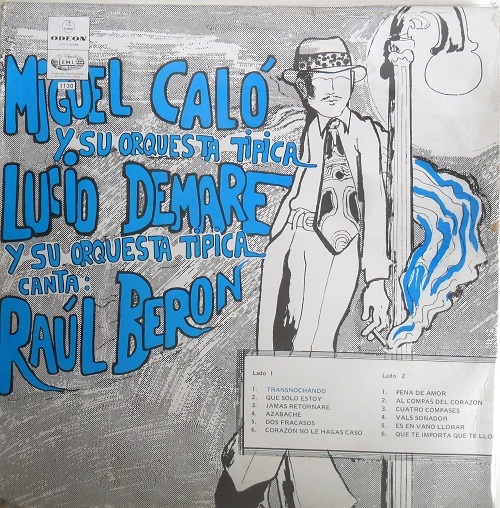 ODEON
EMI
1120
MIGUEL CALÓ
Y SU ORQUESTA TIPICA
LUCIO DEMARE
Y SU ORQUESTA TIPICA
CANTA:
RAÚL BERON
Lado 1
1. TRANSNOCHANDO
2. QUE SOLO ESTOY
3. JAMAS RETORNARE
4. AZABACHE
5. DOS FRACASOS
6. CORAZON NO LE HAGAS CASO
Lado 2
1. PENA DE AMOR
2. AL COMPAS DEL CORAZON
3. CUATRO COMPASES
4. VALS SOÑADOR
5. ES EN VANO LLORAR
6. QUE TE IMPORTA QUE TE LLO